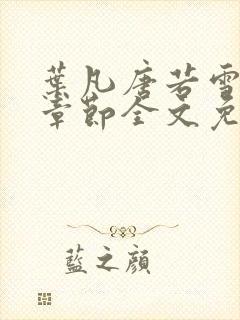 葉凡唐若雪
章節全文免
藍之顔